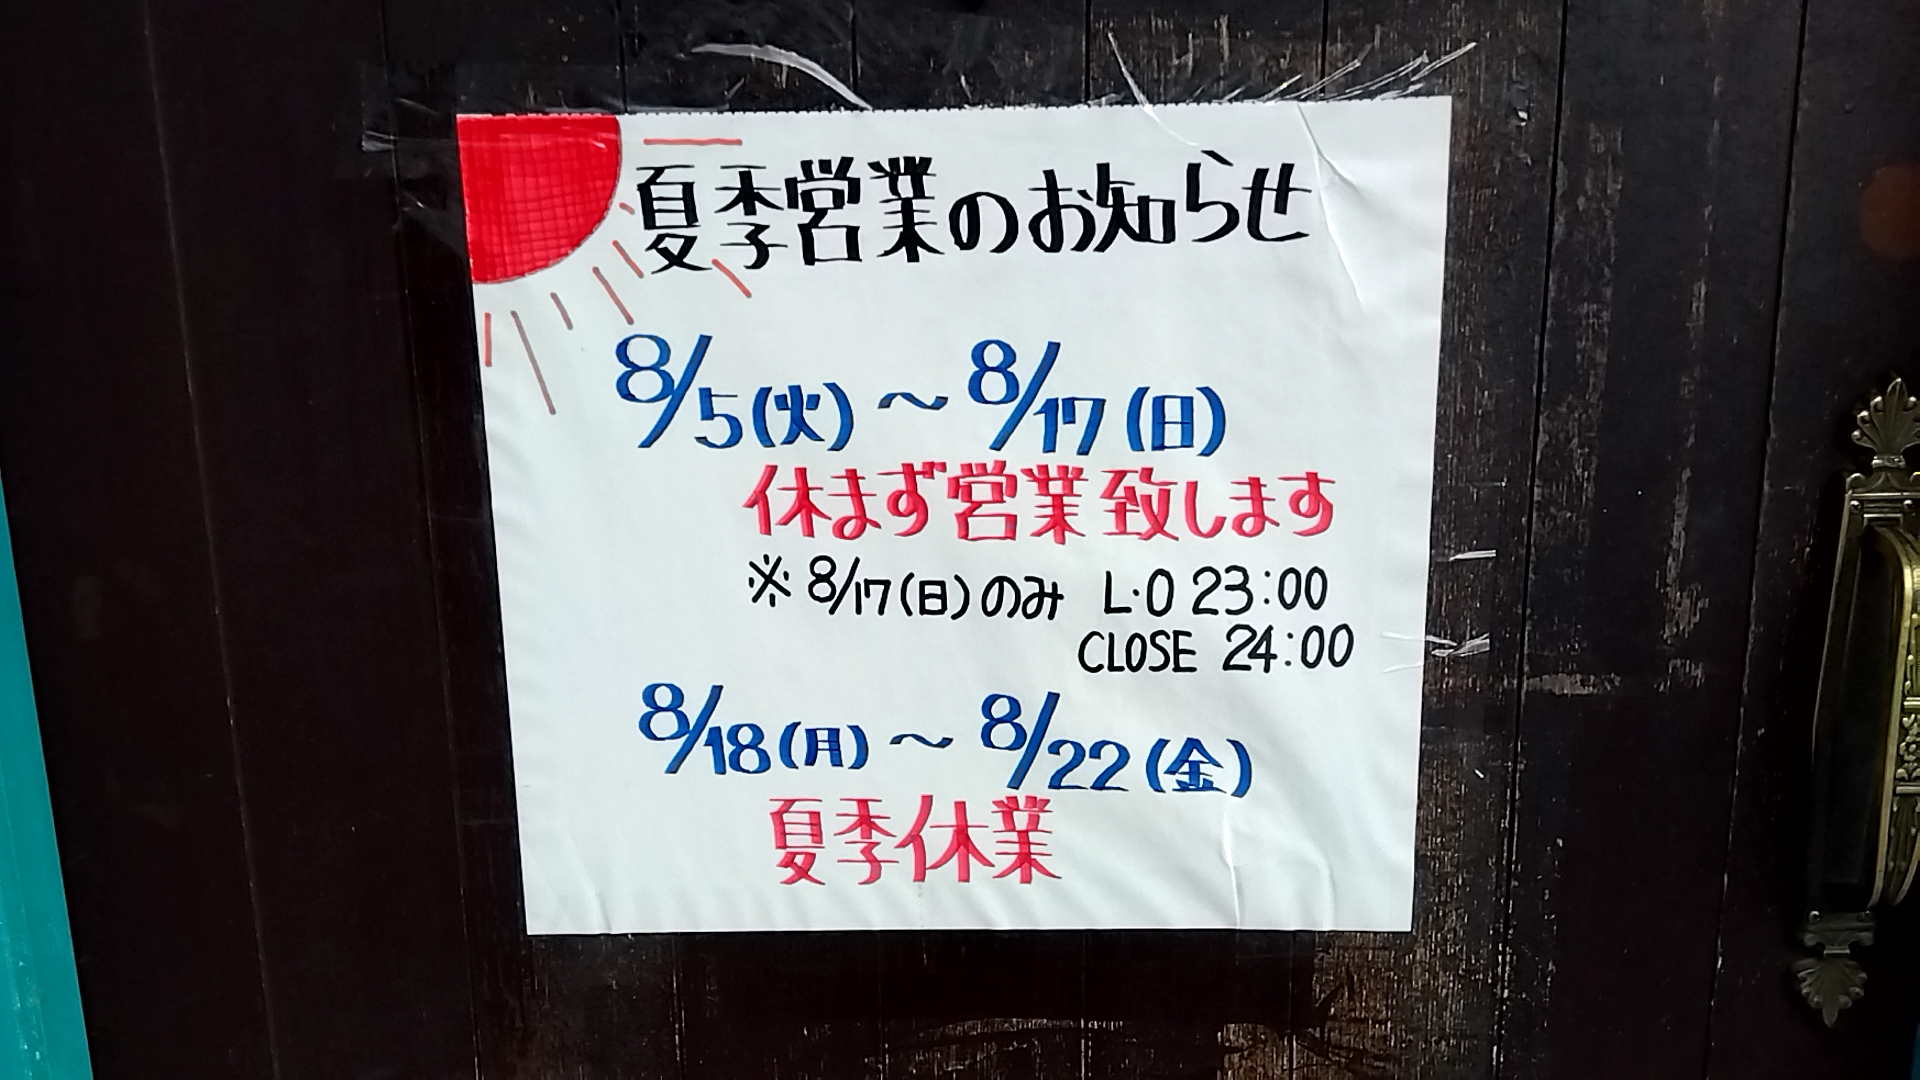 夏季営業のお知らせ
8/5(火)～8/17(日)
休まず営業致します
※8/17(日)のみ L・O 23:00
CLOSE 24:00
8/18(月)～8/22(金)
夏季休業